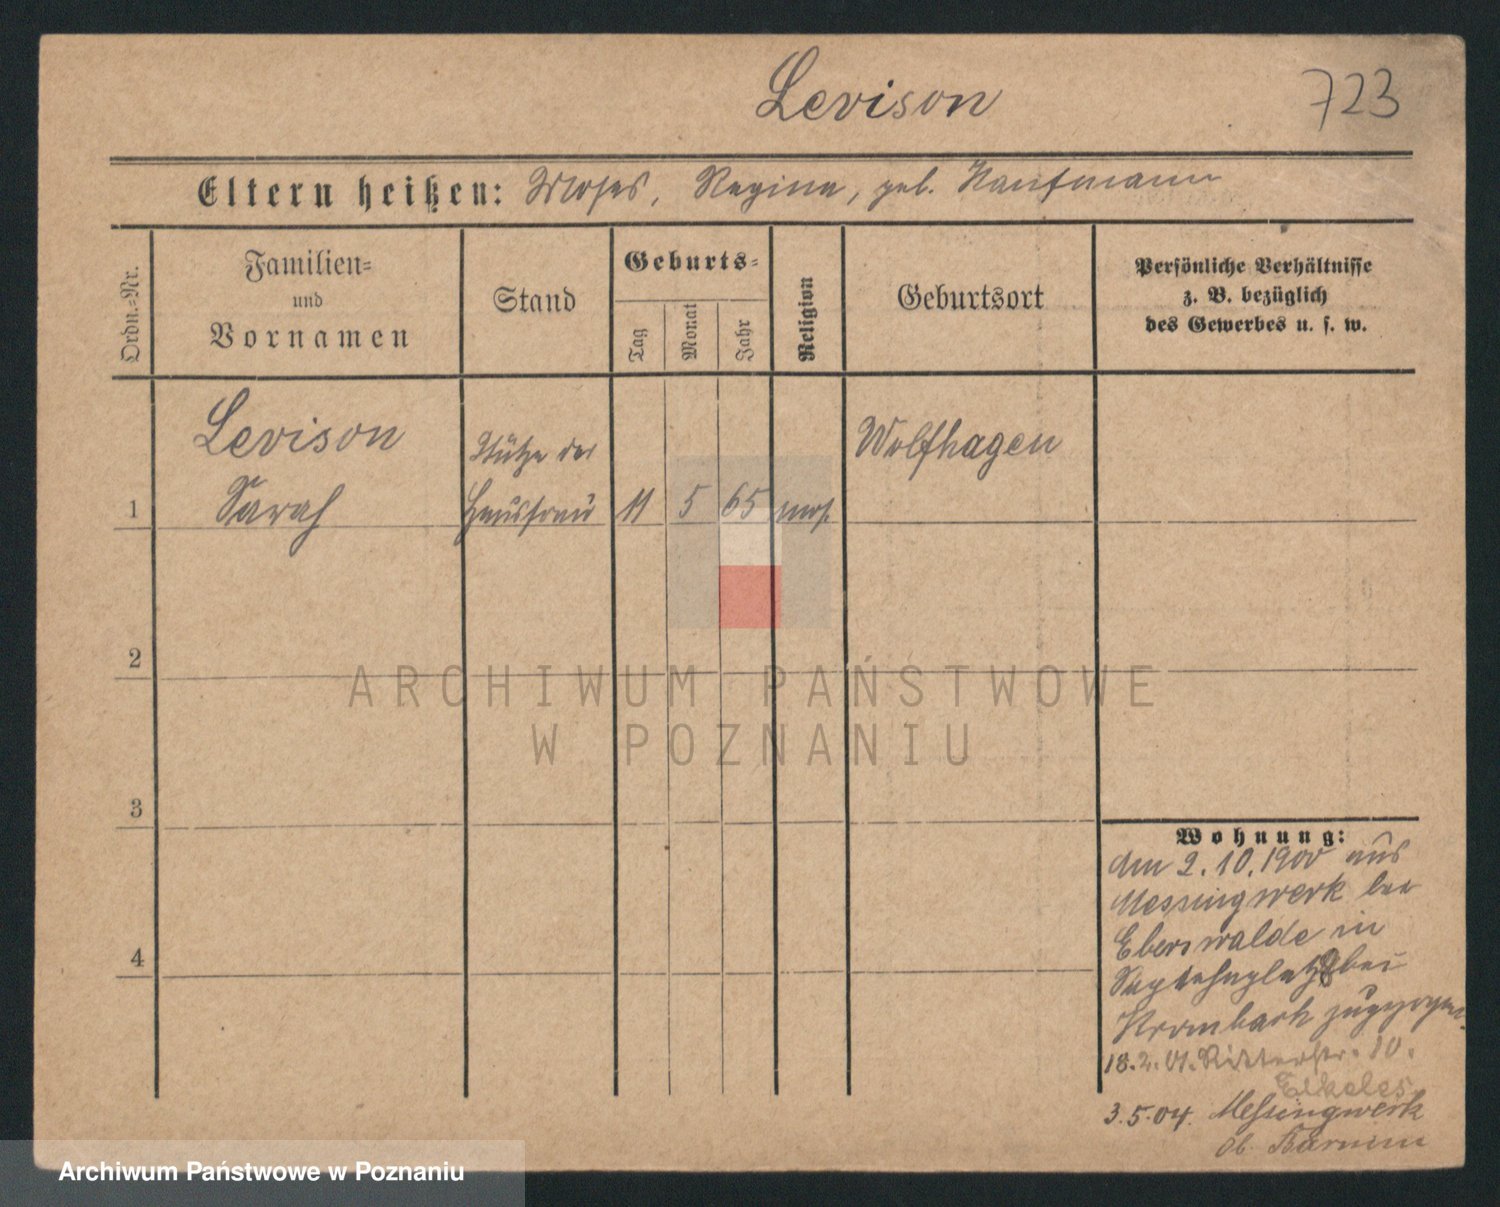 Levison
723
Eltern heißen: Moses, Regina, geb. Kaufmann
Ordn.-Nr.
Familien-
und
Vornamen
Stand
Geburts-
Tag
Monat
Jahr
Religion
Geburtsort
Persönliche Verhältnisse
z. B. bezüglich
des Gewerbes u. s. w.
Levison
Sarah
Stütze der
Hausfrau
1
11
5
65
mos.
Wolfhagen
2
3
4
Wohnung:
Am 2.10.1900 aus
Messingwerk bei
Eberswalde in
Sapiehaplatz 8 bei
Krombach zugezogen.
18.2.01. Ritterstr. 10.
Elkeles
3.5.04. Messingwerk
Ob. Barnim
ARCHIWUM PAŃSTWOWE
W POZNANIU
Archiwum Państwowe w Poznaniu